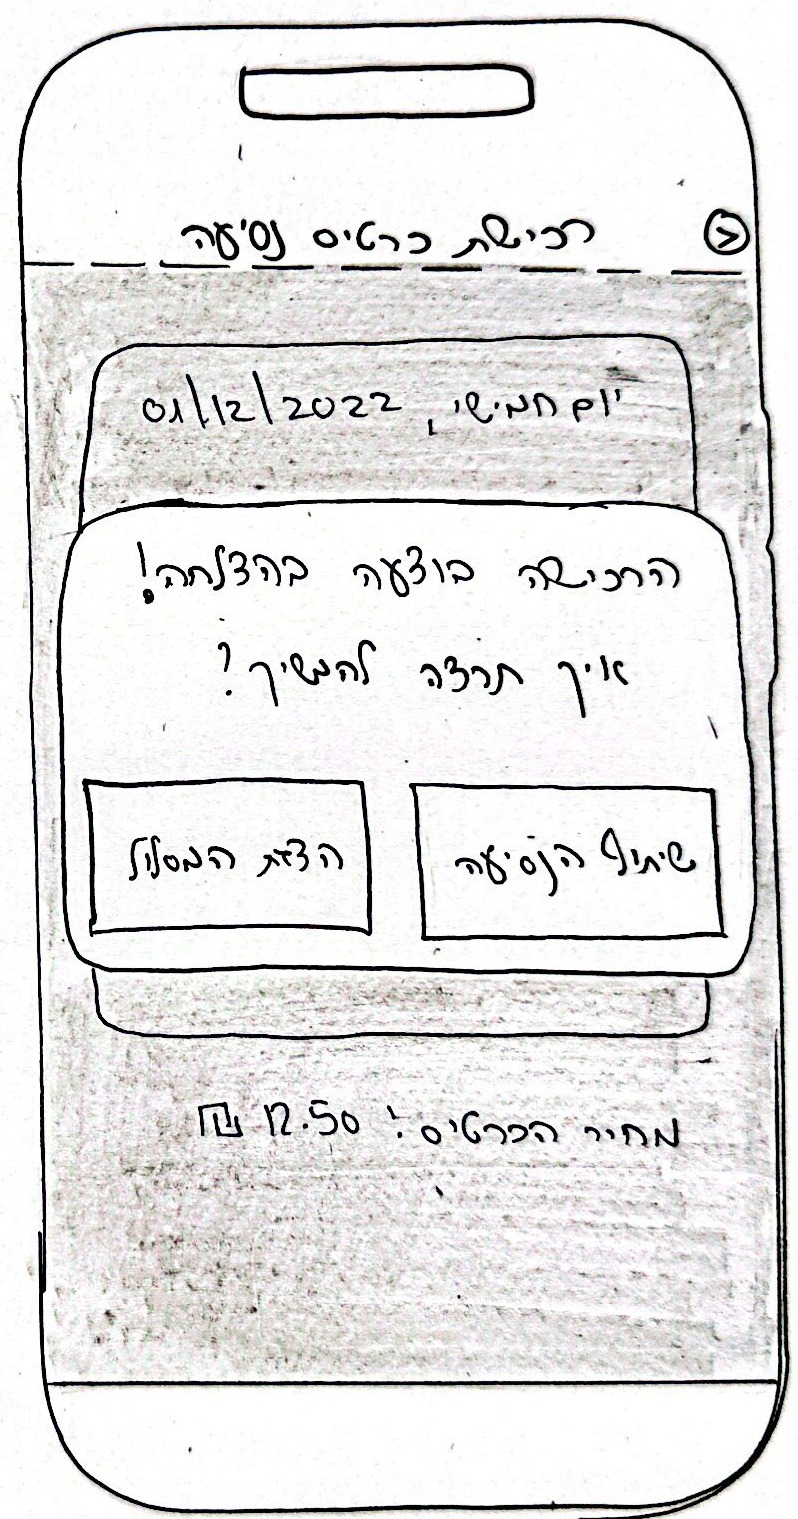 רכישת כרטיס נסיעה
יום חמישי, 01/12/2022
הרכישה בוצעה בהצלחה!
איך תרצה להמשיך?
שיתוף הנסיעה
הצגת המסלול
מחיר הכרטיס: 12.50 ₪